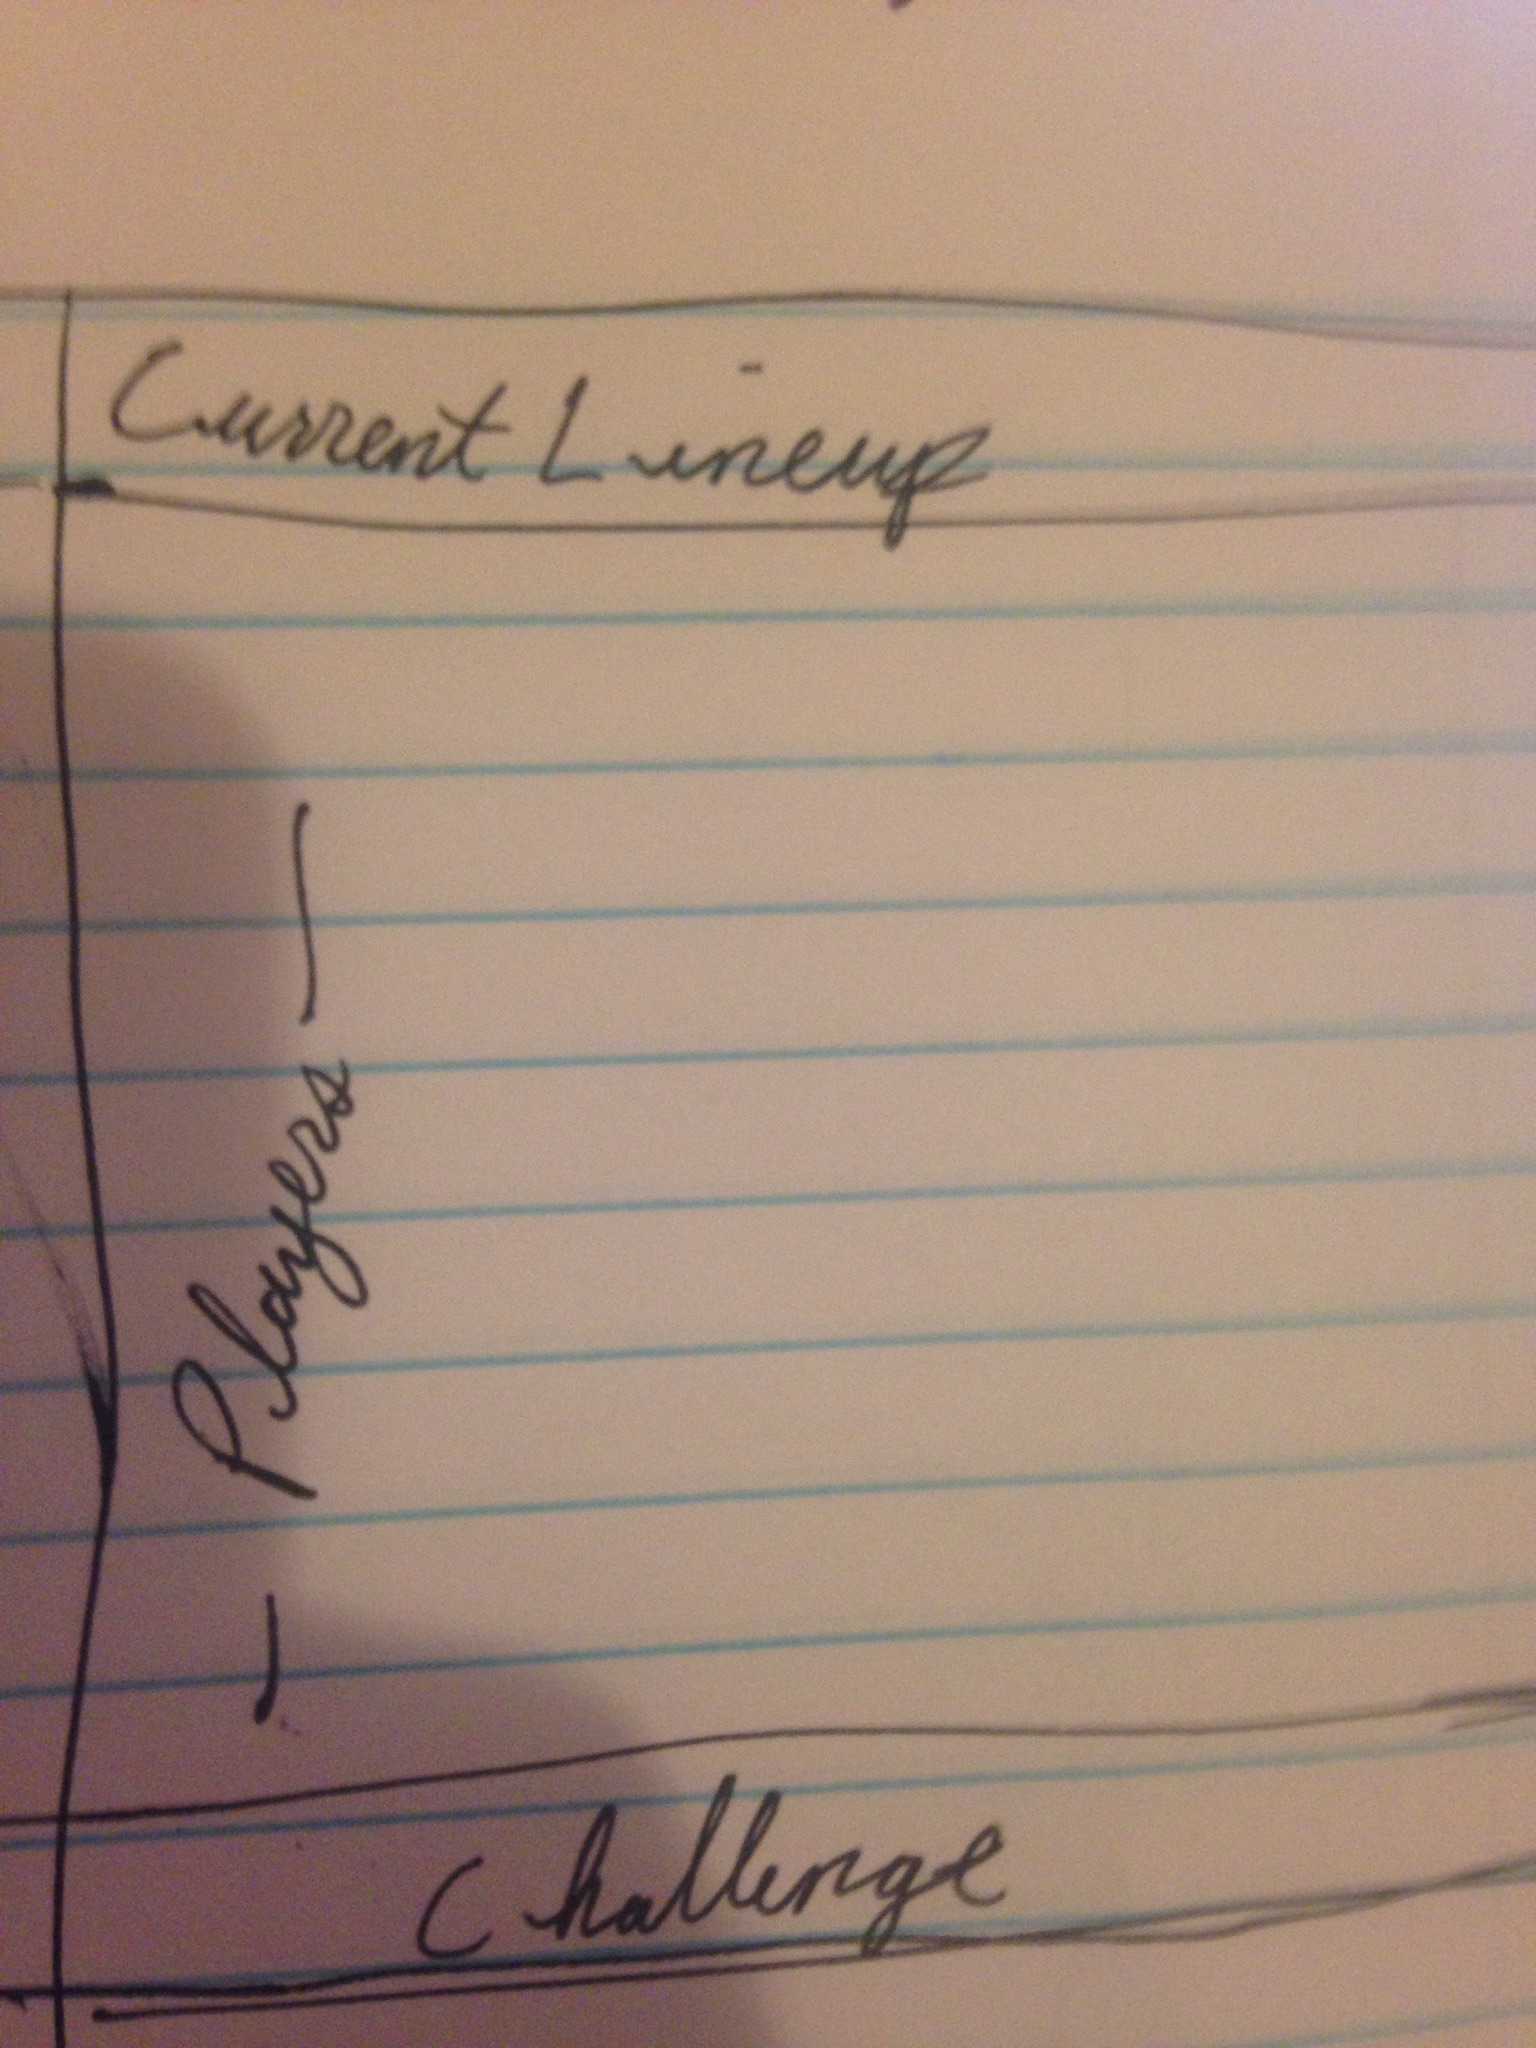 Current Lineup
Players
Challenge